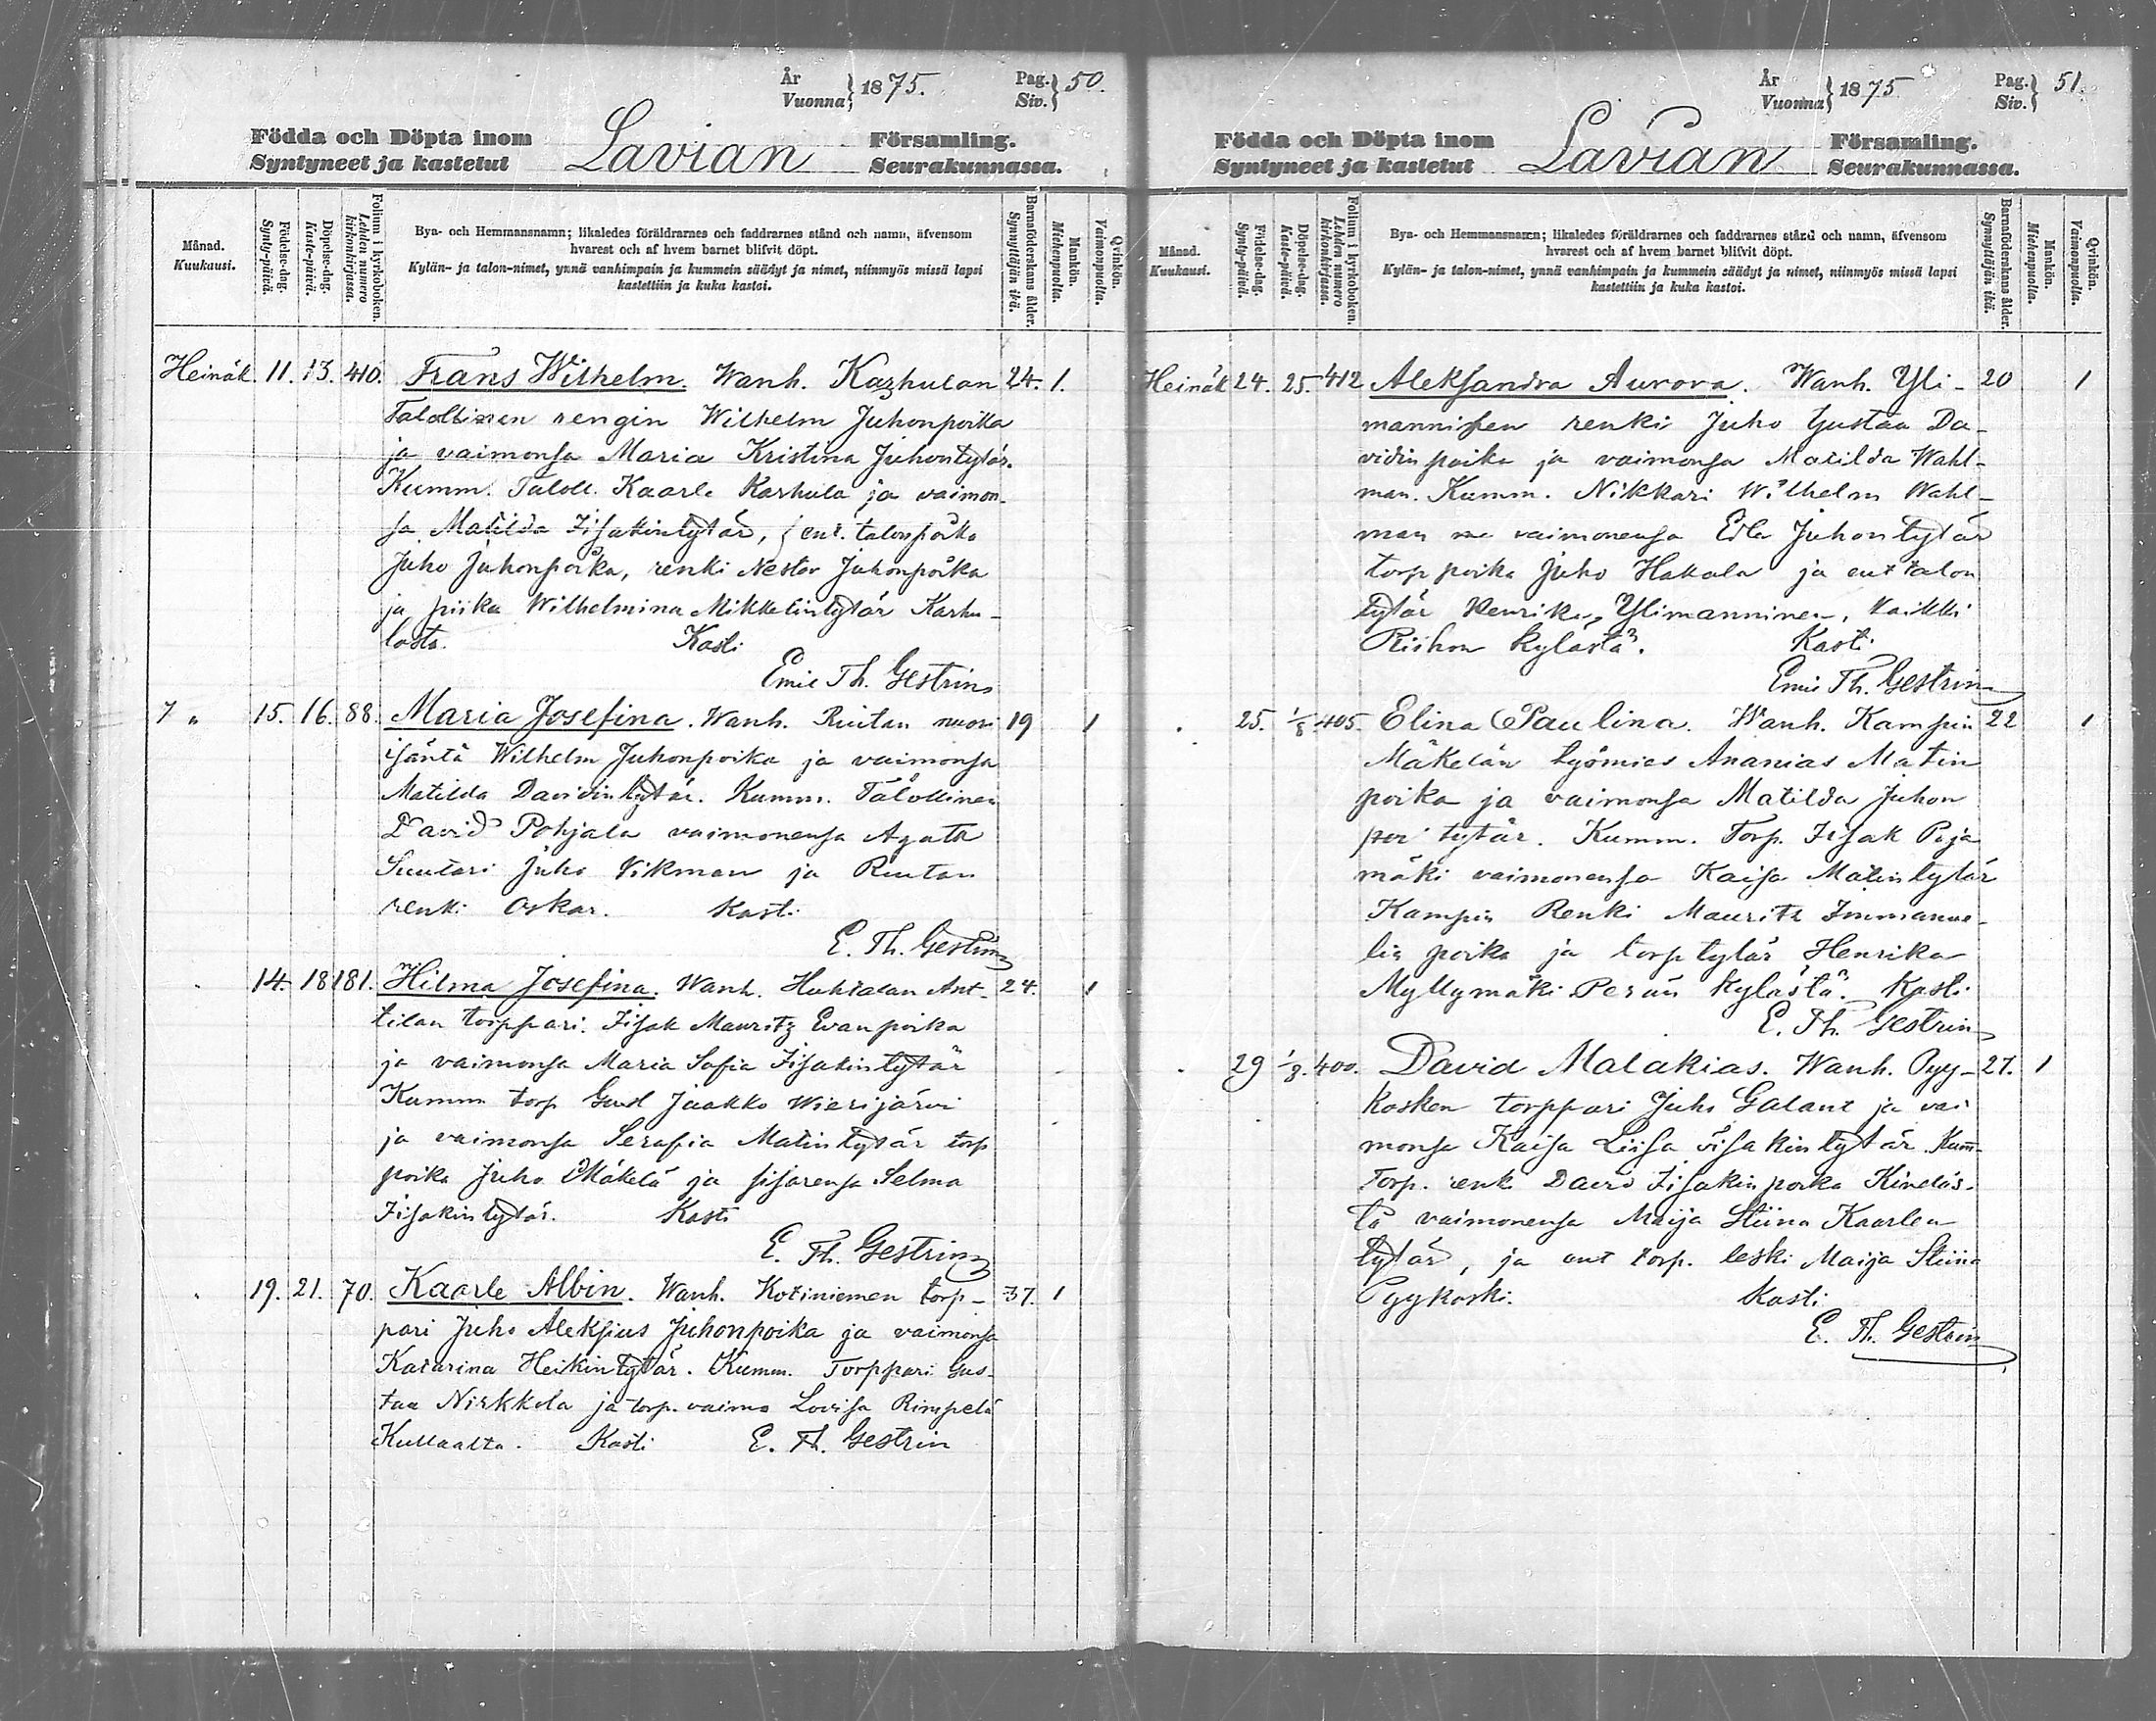 År
Vuonna } 1875. Pag.
Siv. } 50.
Födda och Döpta inom
Syntyneet ja kastetut Lavian Församling.
Seurakunnassa.
Månad.
Kuukausi.
Födelse-dag.
Synty-päivä.
Döpelse-dag.
Kaste-päivä.
Folium i kyrkoboken.
Lehden numero
kirkonkirjassa.
Bya- och Hemmansnamn; likaledes föräldrarnes och faddrarnes stånd och namn, äfvensom
hvarest och af hvem barnet blifvit döpt.
Kylän- ja talon-nimet, ynnä vanhimpain ja kummein säädyt ja nimet, niinmyös missä lapsi
kastettiin ja kuka kastoi.
Barnaföderskans ålder.
Synnyttäjän ikä.
Mankön.
Miehenpuolia.
Qvinkön.
Vaimonpuolia.
Heinäk. 11. 13. 410. Frans Wilhelm. Wanh. Karhulan 24. 1.
Talollisen rengin Wilhelm Juhonpoika
ja vaimonsa Maria Kristina Juhontytär.
Kumm. Taloll. Kaarle Karhula ja vaimon-
sa Matilda Iisakintytär, ent. talonpoika
Juho Juhonpoika, renki Nestor Juhonpoika
ja piika Wilhelmina Mikkelintytär Karhu-
lasta. Kasti
Emil Th. Gestrin
7 " 15. 16. 88. Maria Josefina. Wanh. Ruutan nuori 19 1
isäntä Wilhelm Juhonpoika ja vaimonsa
Matilda Davidintytär. Kumm. Talollinen
David Pohjala vaimonensa Agata
Suutari Juho Vikman ja Ruutan
renki Oskar. Kasti
E. Th. Gestrin
14. 18 181. Hilma Josefina. Wanh. Huhtalan Ant- 24. 1
tilan torppari Iisak Mauritz Evanpoika
ja vaimonsa Maria Sofia Iisakintytär
Kumm torp Gust Jaakko Wierijärvi
ja vaimonsa Serafia Matintytär torp
poika Juho Mäkelä ja sisarensa Selma
Iisakintytär. Kasti
E. Th. Gestrin
19. 21. 70. Kaarle Albin. Wanh. Kotiniemen torp- 37. 1
pari Juho Aleksius Juhonpoika ja vaimonsa
Katarina Heikintytär. Kumm. Torppari Gus-
taa Nirkkola ja torp. vaimo Lovisa Rimpelä
Kullaalta. Kasti E. Th. Gestrin
År
Vuonna } 1875 Pag.
Siv. } 51.
Födda och Döpta inom
Syntyneet ja kastetut Lavian Församling.
Seurakunnassa.
Månad.
Kuukausi.
Födelse-dag.
Synty-päivä.
Döpelse-dag.
Kaste-päivä.
Folium i kyrkoboken.
Lehden numero
kirkonkirjassa.
Bya- och Hemmansnamn; likaledes föräldrarnes och faddrarnes stånd och namn, äfvensom
hvarest och af hvem barnet blifvit döpt.
Kylän- ja talon-nimet, ynnä vanhimpain ja kummein säädyt ja nimet, niinmyös missä lapsi
kastettiin ja kuka kastoi.
Barnaföderskans ålder.
Synnyttäjän ikä.
Mankön.
Miehenpuolia.
Qvinkön.
Vaimonpuolia.
Heinäk 24. 25. 412 Aleksandra Aurora. Wanh. Yli- 20 1
mannisen renki Juho Gustaa Da-
vidin poika ja vaimonsa Matilda Wahl-
man. Kumm. Nikkari Wilhelm Wahl-
man vaimonensa Edla Juhontytär
torp poika Juho Hakala ja ent talon
tytär Henrika Ylimanninen, kaikki
Riihon kylästä. Kasti
Emil Th. Gestrin
25. 1/8 405. Elina Paulina. Wanh. Kampin 22 1
Mäkelän työmies Ananias Matin
poika ja vaimonsa Matilda Juhon
tytär. Kumm. Torp. Iisak Paja
mäki vaimonensa Kaisa Matintytär
Kampin Renki Maurits Immanue-
lin poika ja torp tytär Henrika
Myllymäki Perän kylästä. Kasti
E. Th. Gestrin
29 1/8. 400. David Malakias. Wanh. Pyy- 27. 1
kosken torppari Juho Galant ja vai
monsa Kaisa Liisa Iisakintytär. Kum-
Torp. renk David Iisakinpoika
vaimonensa Maija Stiina Kaarlen
tytär, ja ent torp. leski Maija Stiina
Pyykoski. Kasti
E. Th. Gestrin